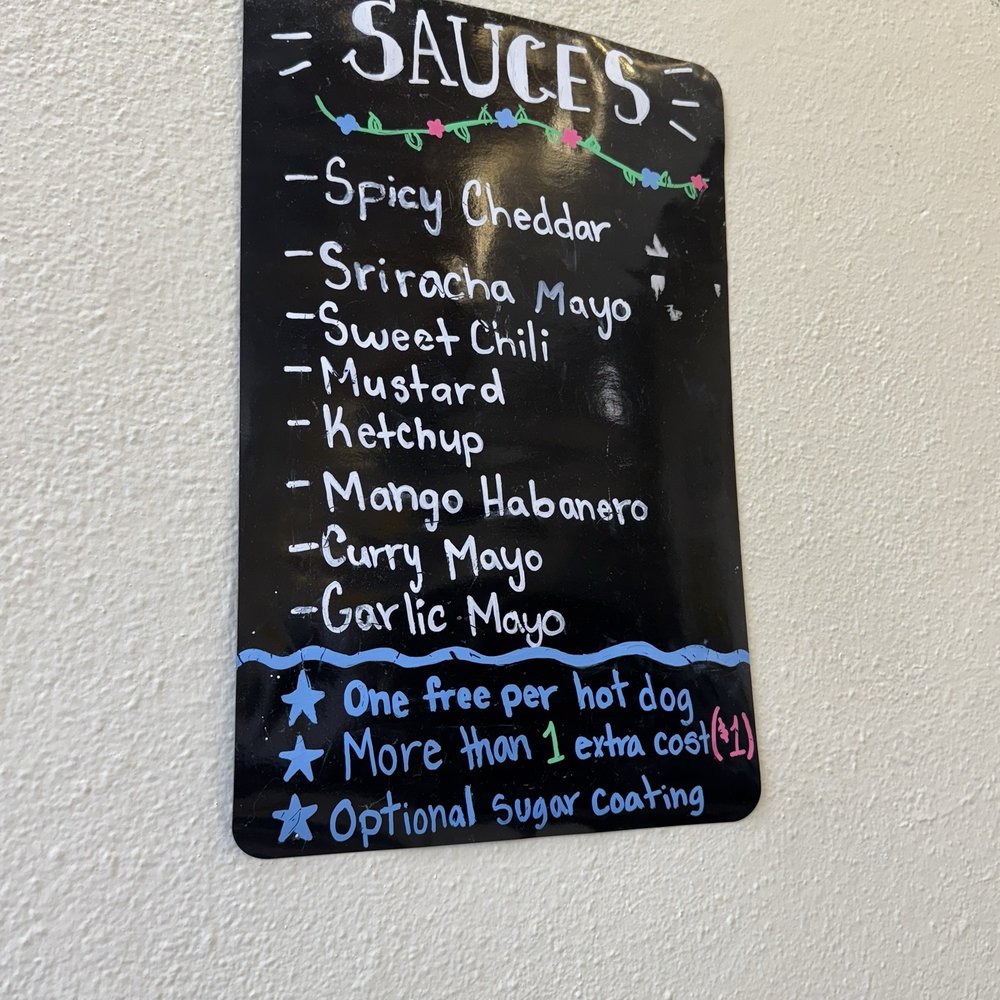 SAUCES
- Spicy Cheddar
- Sriracha Mayo
- Sweet Chili
- Mustard
- Ketchup
- Mango Habanero
- Curry Mayo
- Garlic Mayo
★ One free per hot dog
★ More than 1 extra cost ($1)
★ Optional sugar coating